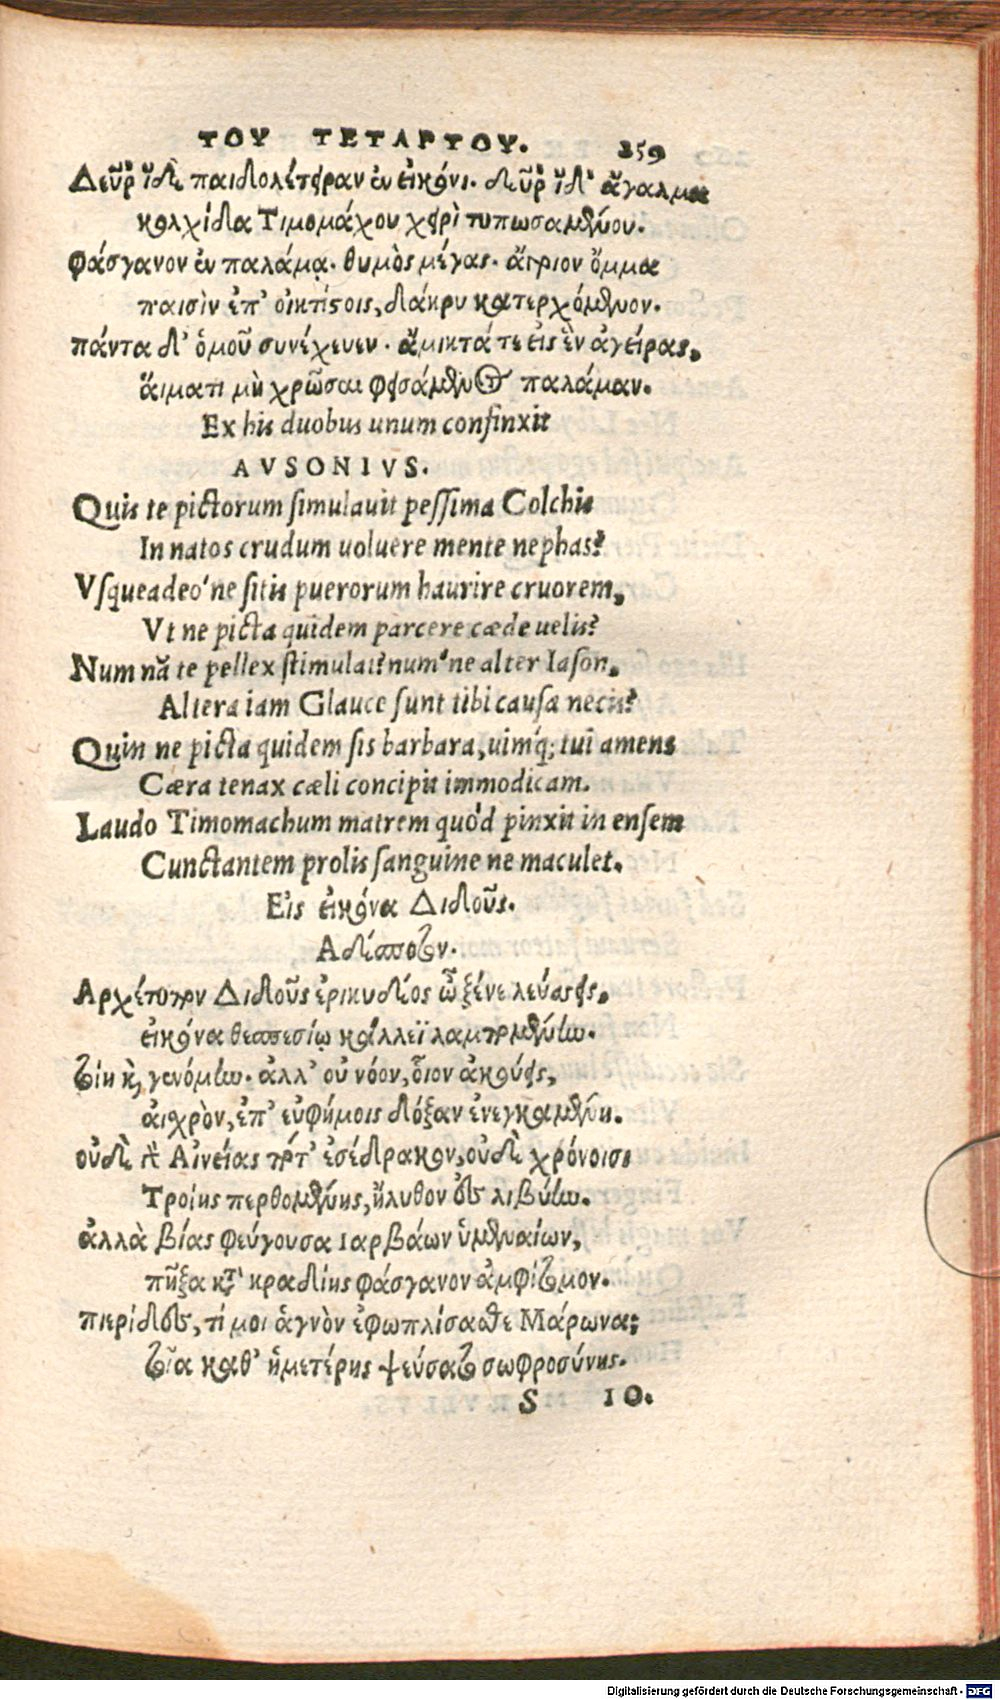 ΤΟΥ ΤΕΤΑΡΤΟΥ. 259
Δεῦρ' ἴδε παιδολέτειραν ἐν εἰκόνι. δεῦρ' ἴδ' ἄγαλμα
κολχίδα Τιμομάχου χειρὶ τυπωσαμένου.
φάσγανον ἐν παλάμᾳ. θυμὸς μέγας. ἄγριον ὄμμα
παισὶν ἐπ' οἰκτίστοις, δάκρυ κατερχόμενον.
πάντα δ' ὁμοῦ συνέχευεν. ἄμικτά τε εἰς ἓν ἀγείρας,
αἵματι μὴ χρῶσαι φεισάμενος παλάμαν.
Ex his duobus unum confinxit
AVSONIVS.
Quis te pictorum ſimulauit peſſima Colchis
In natos crudum uoluere mente nephas?
Vſqueadeo'ne ſitis puerorum haurire cruorem,
Vt ne picta quidem parcere cæde uelis?
Num nã te pellex ſtimulat? num'ne alter Iaſon,
Altera iam Glauce ſunt tibi cauſa necis?
Quin ne picta quidem ſis barbara, uimq́; tui amens
Cæra tenax cæli concipit immodicam.
Laudo Timomachum matrem quòd pinxit in enſem
Cunctantem prolis ſanguine ne maculet.
Εἰς εἰκόνα Διδοῦς.
Αδέσποτον.
Αρχέτυπον Διδοῦς ἐρικυδέος ὦ ξένε λεύσσεις,
εἰκόνα θεσπεσίῳ κάλλεϊ λαμπομένην.
τοίη καὶ γενόμην. ἀλλ' οὐ νόον, οἷον ἀκούεις,
αἰχρὸν, ἐπ' εὐφήμοις δόξαν ἐνεγκαμένη.
οὐδὲ γὰρ Αἰνείας ποτ' ἐσέδρακον, οὐδὲ χρόνοισι
Τροίης περθομένης, ἤλυθον ἐς λιβύην.
ἀλλὰ βίας φεύγουσα Ιαρβάων ὑμεναίων,
πῆξα κατὰ κραδίης φάσγανον ἀμφίτομον.
πιερίδες, τί μοι ἁγνὸν ἐφωπλίσασθε Μάρωνα;
τοῖα καθ' ἡμετέρης ψεύσατο σωφροσύνης.
S ΙΟ.
Digitalisierung gefördert durch die Deutsche Forschungsgemeinschaft - DFG